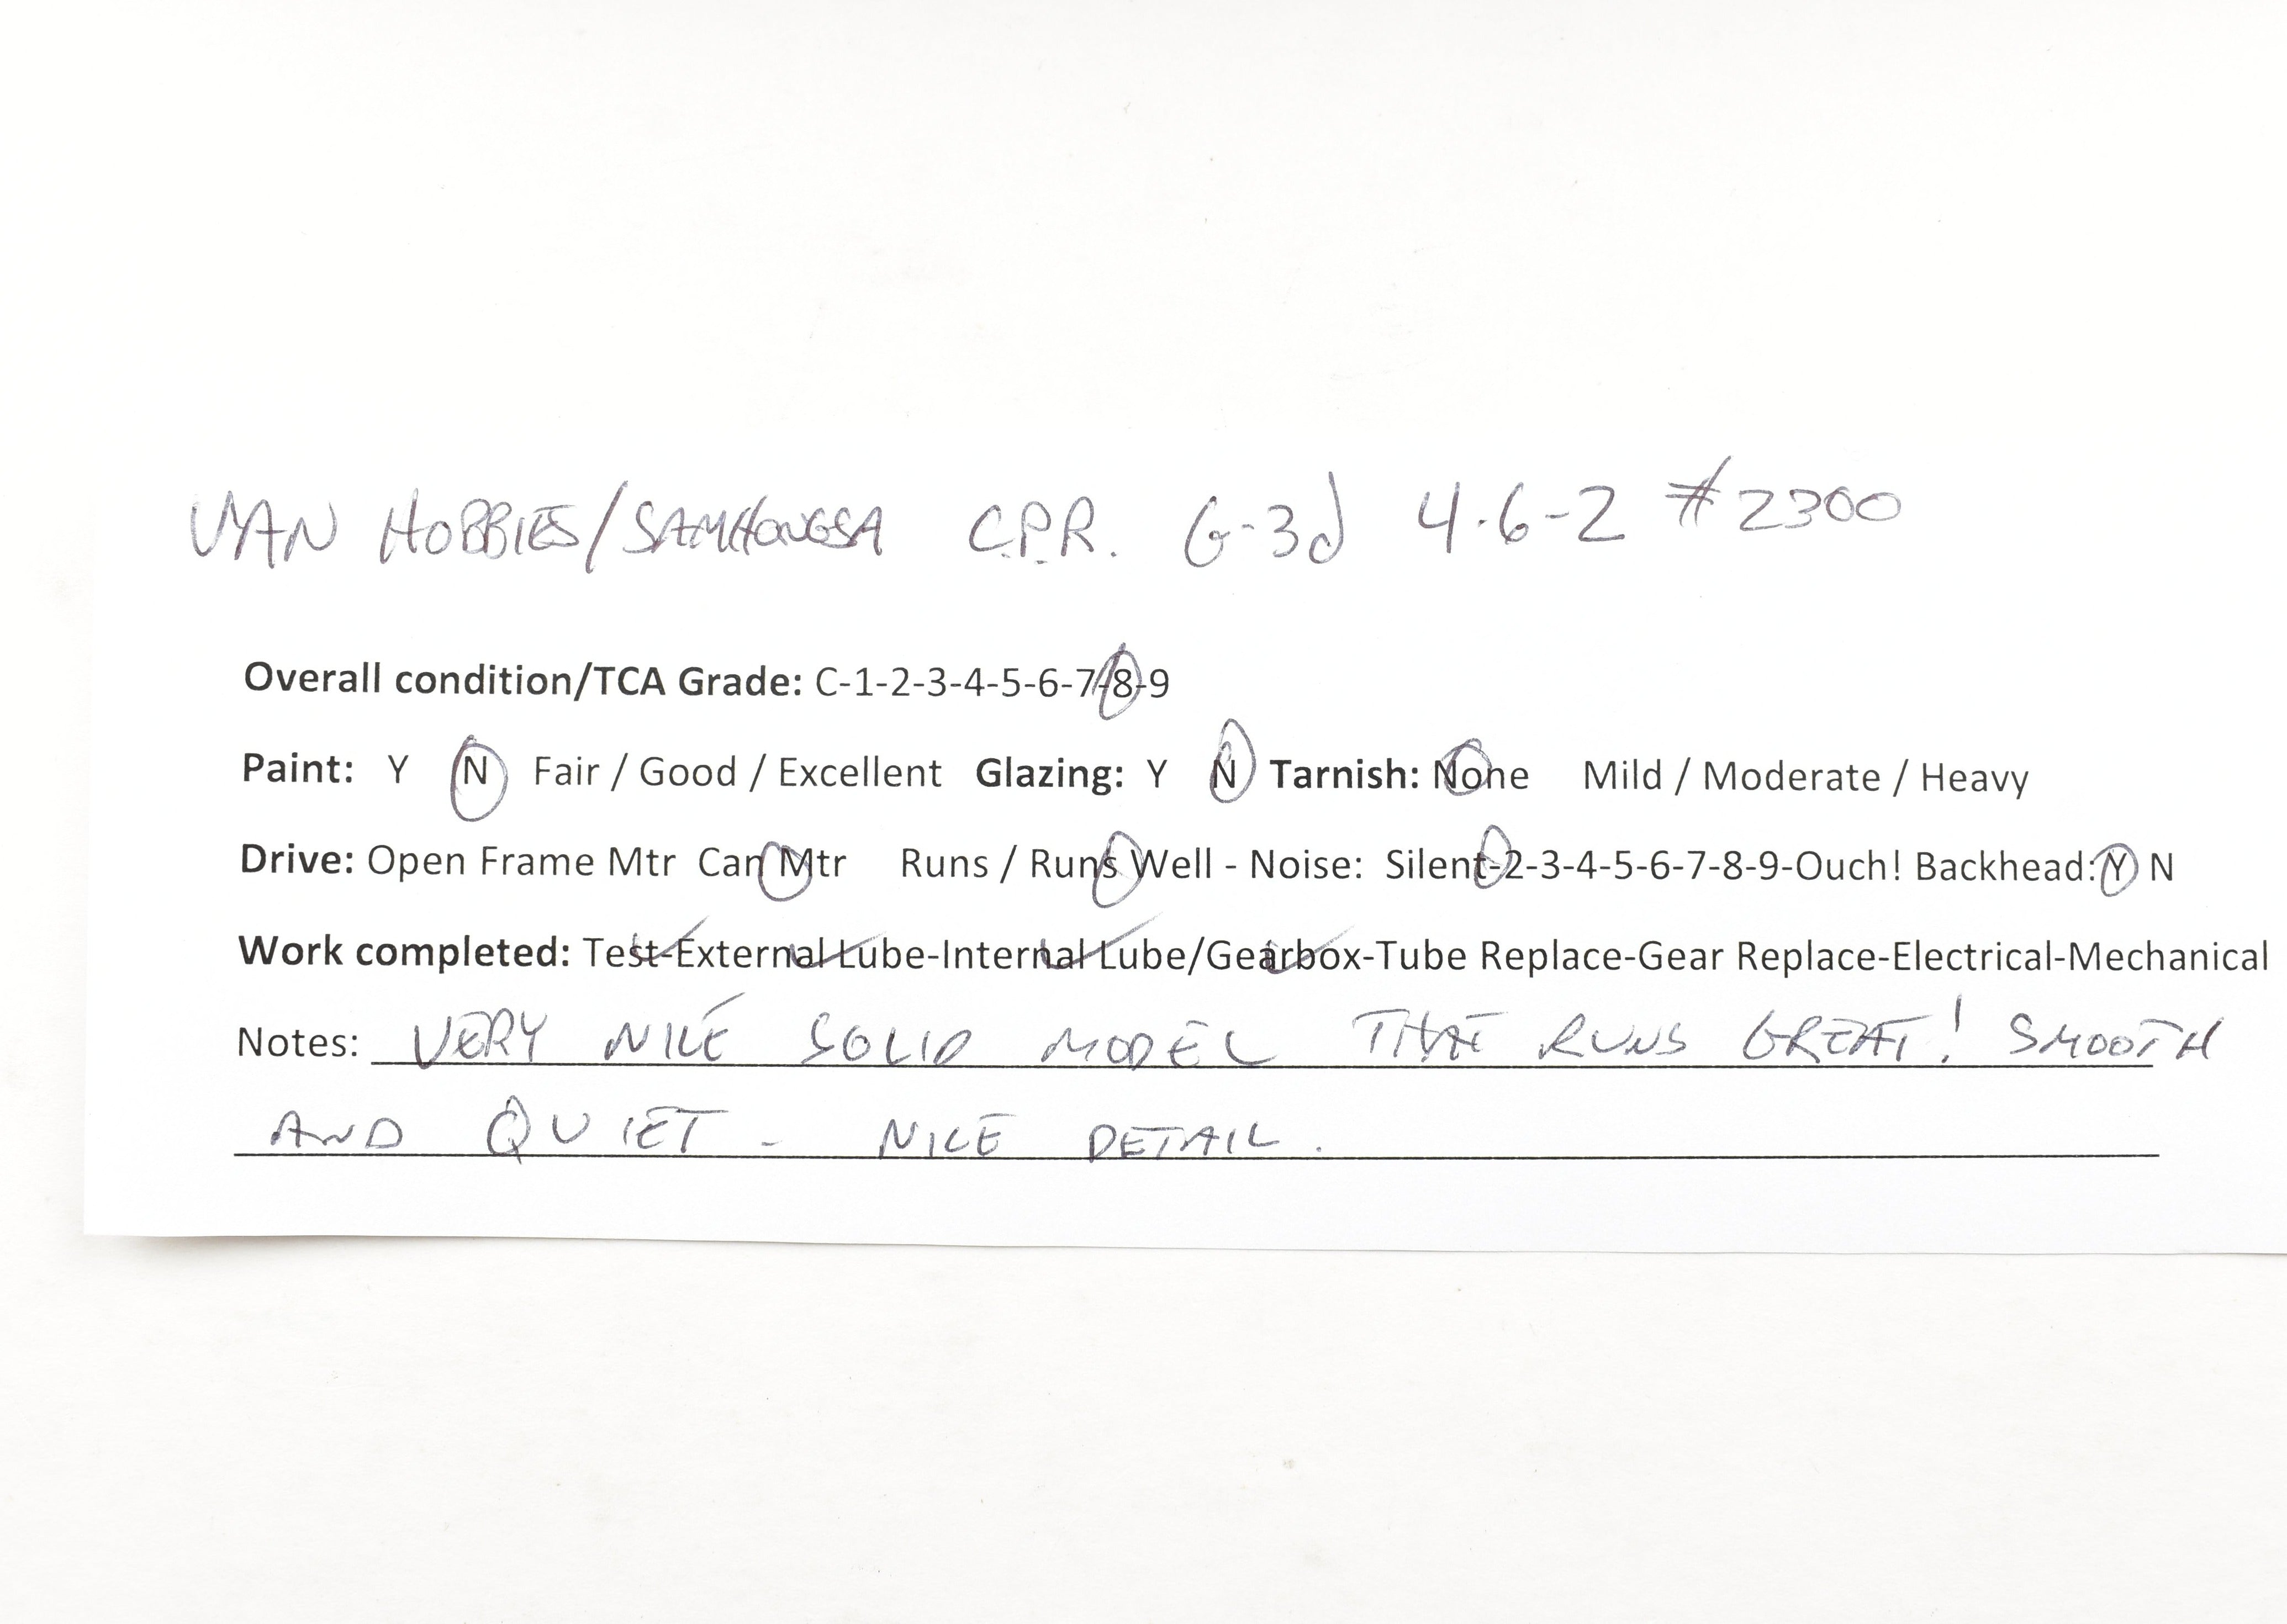 VAN HOBBIES/SAMHONGSA C.P.R. G-3d 4-6-2 #2300
Overall condition/TCA Grade: C-1-2-3-4-5-6-7-8-9
Paint: Y N Fair / Good / Excellent Glazing: Y N Tarnish: None Mild / Moderate / Heavy
Drive: Open Frame Mtr Can Mtr Runs / Runs Well - Noise: Silent-2-3-4-5-6-7-8-9-Ouch! Backhead: Y N
Work completed: Test-External Lube-Internal Lube/Gearbox-Tube Replace-Gear Replace-Electrical-Mechanical
Notes: VERY NICE SOLID MODEL THAT RUNS GREAT! SMOOTH
AND QUIET - NICE DETAIL.